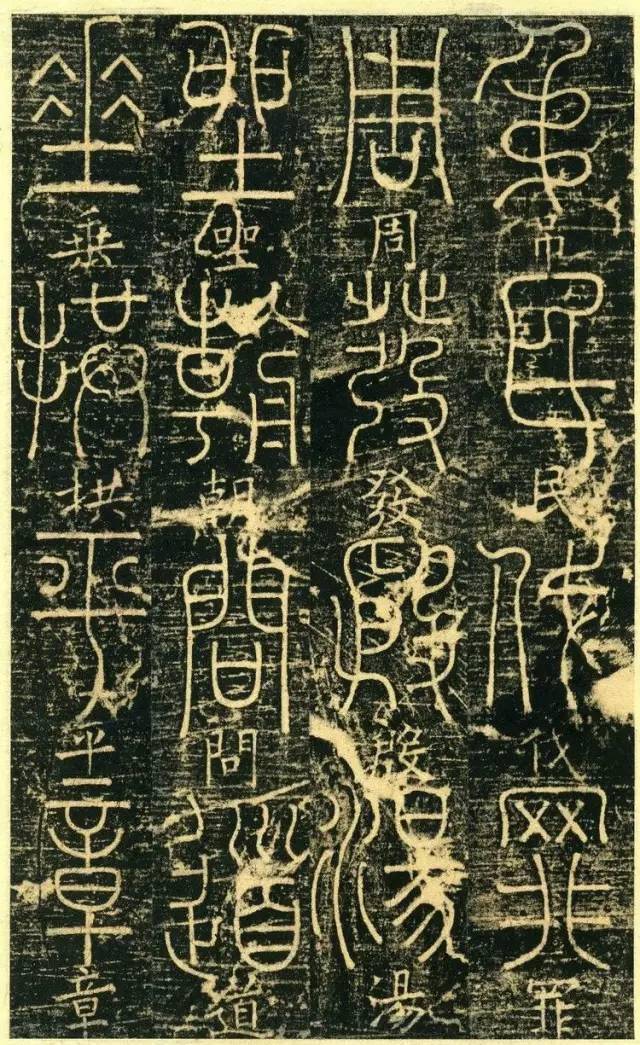 弔吊民民伐伐罪罪
周周發發殷殷湯湯
坐坐朝朝問問道道
垂垂拱拱平平章章